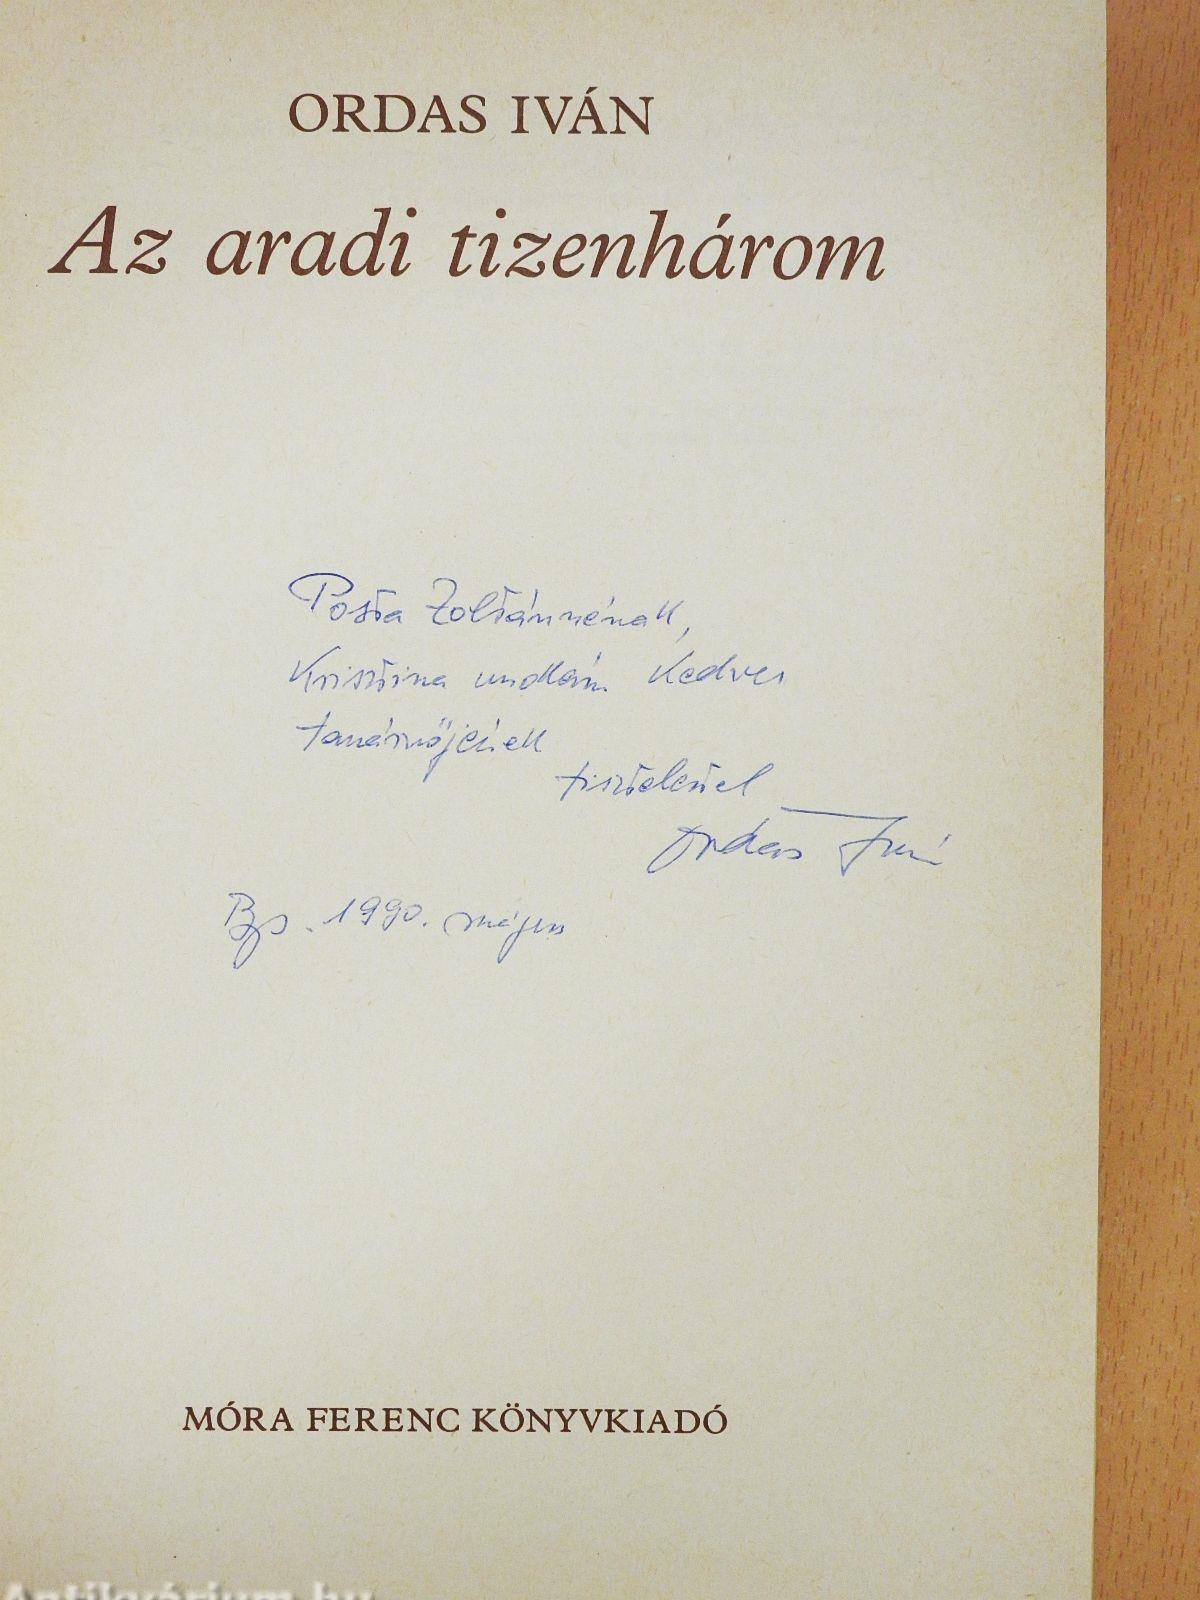 ORDAS IVÁN
Az aradi tizenhárom
Posta Zoltánnénak,
Krisztina unokám kedves
tanárnőjének
tisztelettel
Ordas Iván
Bp. 1990. május
MÓRA FERENC KÖNYVKIADÓ
Antikvárium.hu